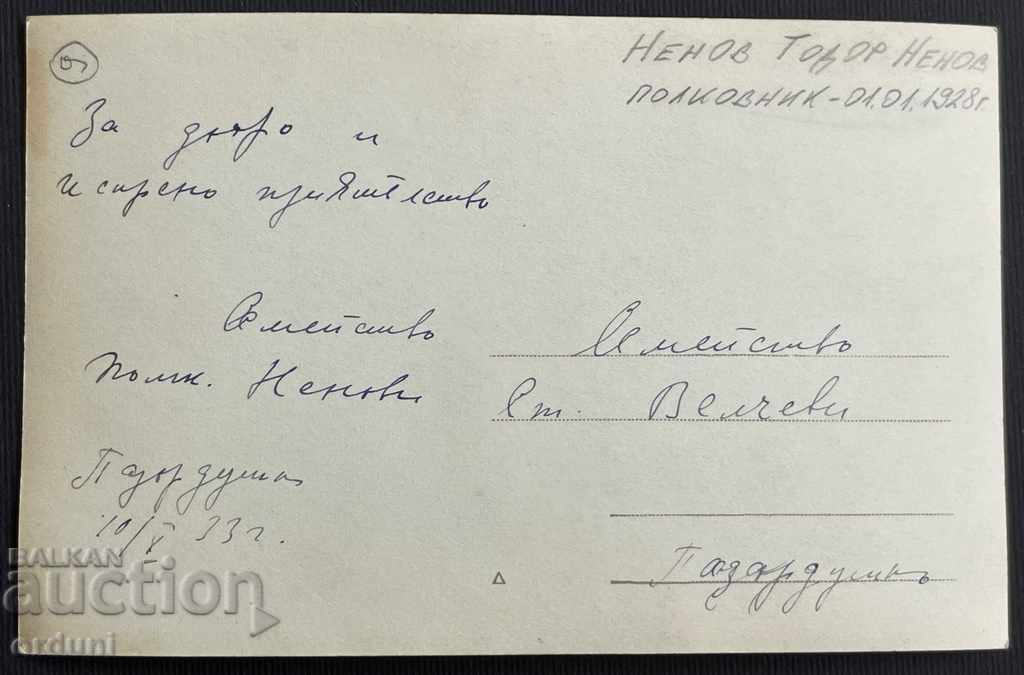 НЕНОВ ТОДОР НЕНОВ
ПОЛКОВНИК - 01.01.1928 г.
За добро и
искрено приятелство
Семейство
Полк. Ненови
Пазарджик
10/X 33 г.
Семейство
Ст. Велчеви
Пазарджик
BALKAN
auction
orduni